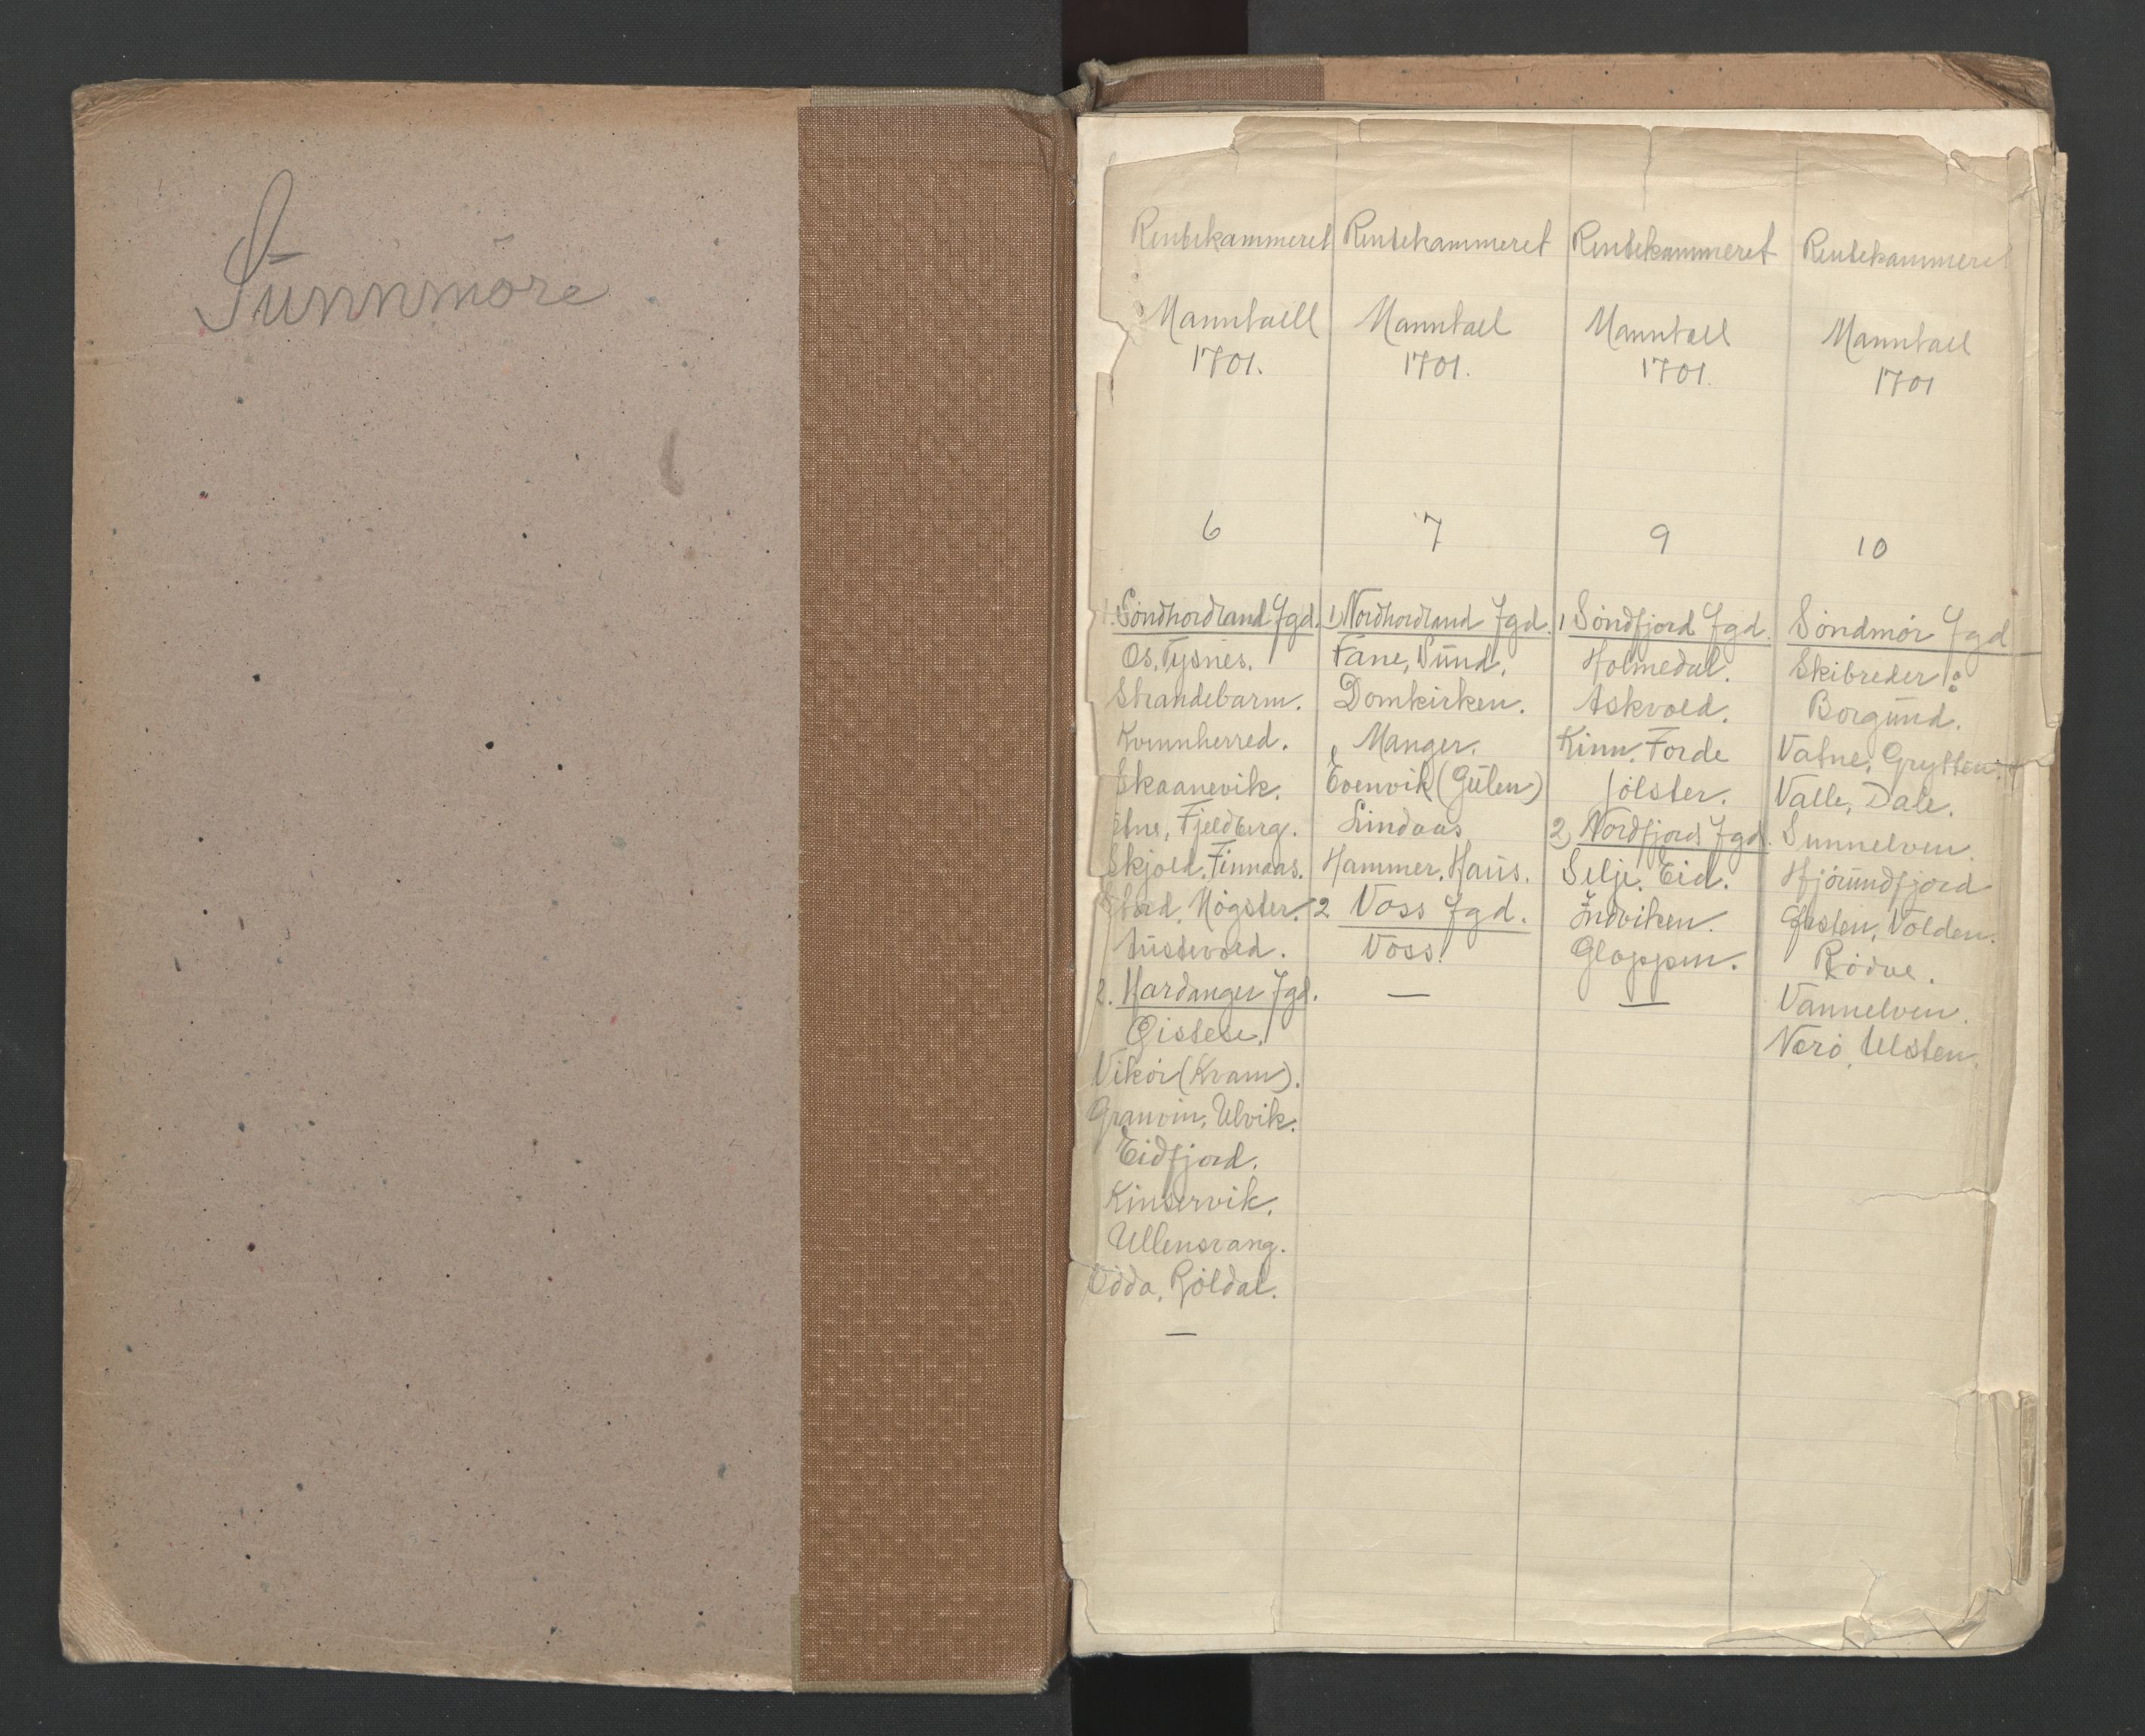 Sunnmöre
Rentekammeret
Manntall
1701.
6
1. Söndhordland Fgd.
Os, Tysnes.
Strandebarm.
Kvinnherred.
Skaanevik.
Etne, Fjeldberg.
Skjold, Finnaas.
Stord, Mögster.
Austevold.
2. Hardanger Fgd.
Öistese.
Vikör (Kvam).
Granvin, Ulvik.
Eidfjord.
Kinservik.
Ullensvang.
Odda, Röldal.
—
Rentekammeret
Manntal
1701.
7
1) Nordhordland Fgd.
Fane, Sund.
Domkirken.
Manger.
Evenvik (Gulen)
Lindaas
Hammer, Haus.
2 Voss Fgd.
Voss.
—
Rentekammeret
Manntall
1701.
9
1 Söndfjord Fgd.
Holmedal.
Askvold.
Kinn, Förde
Jölster.
2) Nordfjord Fgd.
Selje, Eid.
Indviken.
Gloppen.
—
Rentekammeret
Manntall
1701
10
Söndmör Fgd
Skibreder:
Borgund.
Vatne, Grytten.
Valle, Dale.
Sunnelven.
Hjörundfjord
Örsten, Volden.
Rödve.
Vannelven.
Herö, Ulsten.